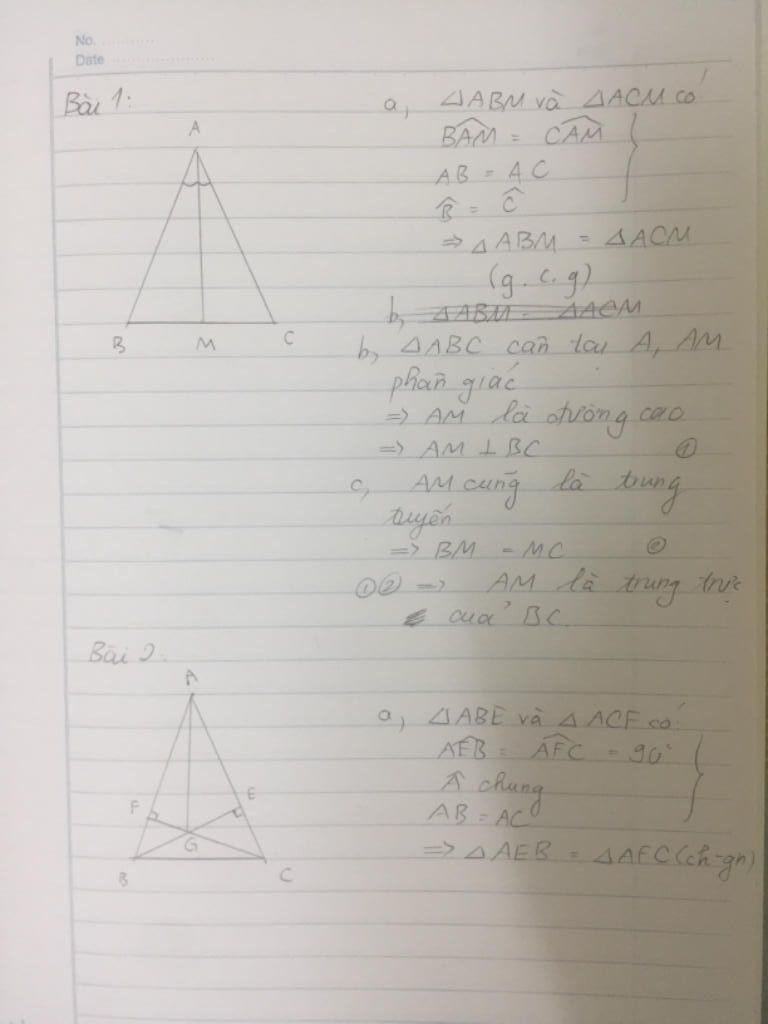 No. ............
Date ......................
Bài 1:
A
B
M
C
a, △ABM và △ACM có
BAM̂ = CAM̂
AB = AC
B̂ = Ĉ
=> △ABM = △ACM
(g.c.g)
b, △ABM = △ACM
b, △ABC cân tại A, AM
phân giác
=> AM là đường cao
=> AM ⊥ BC ①
c, AM cũng là trung
tuyến
=> BM = MC ②
①② => AM là trung trực
của BC.
Bài 2.
A
F
E
G
B
C
a, △ABE và △ACF có:
AEB̂ = AFĈ = 90°
Â chung
AB = AC
=> △AEB = △AFC (ch-gn)